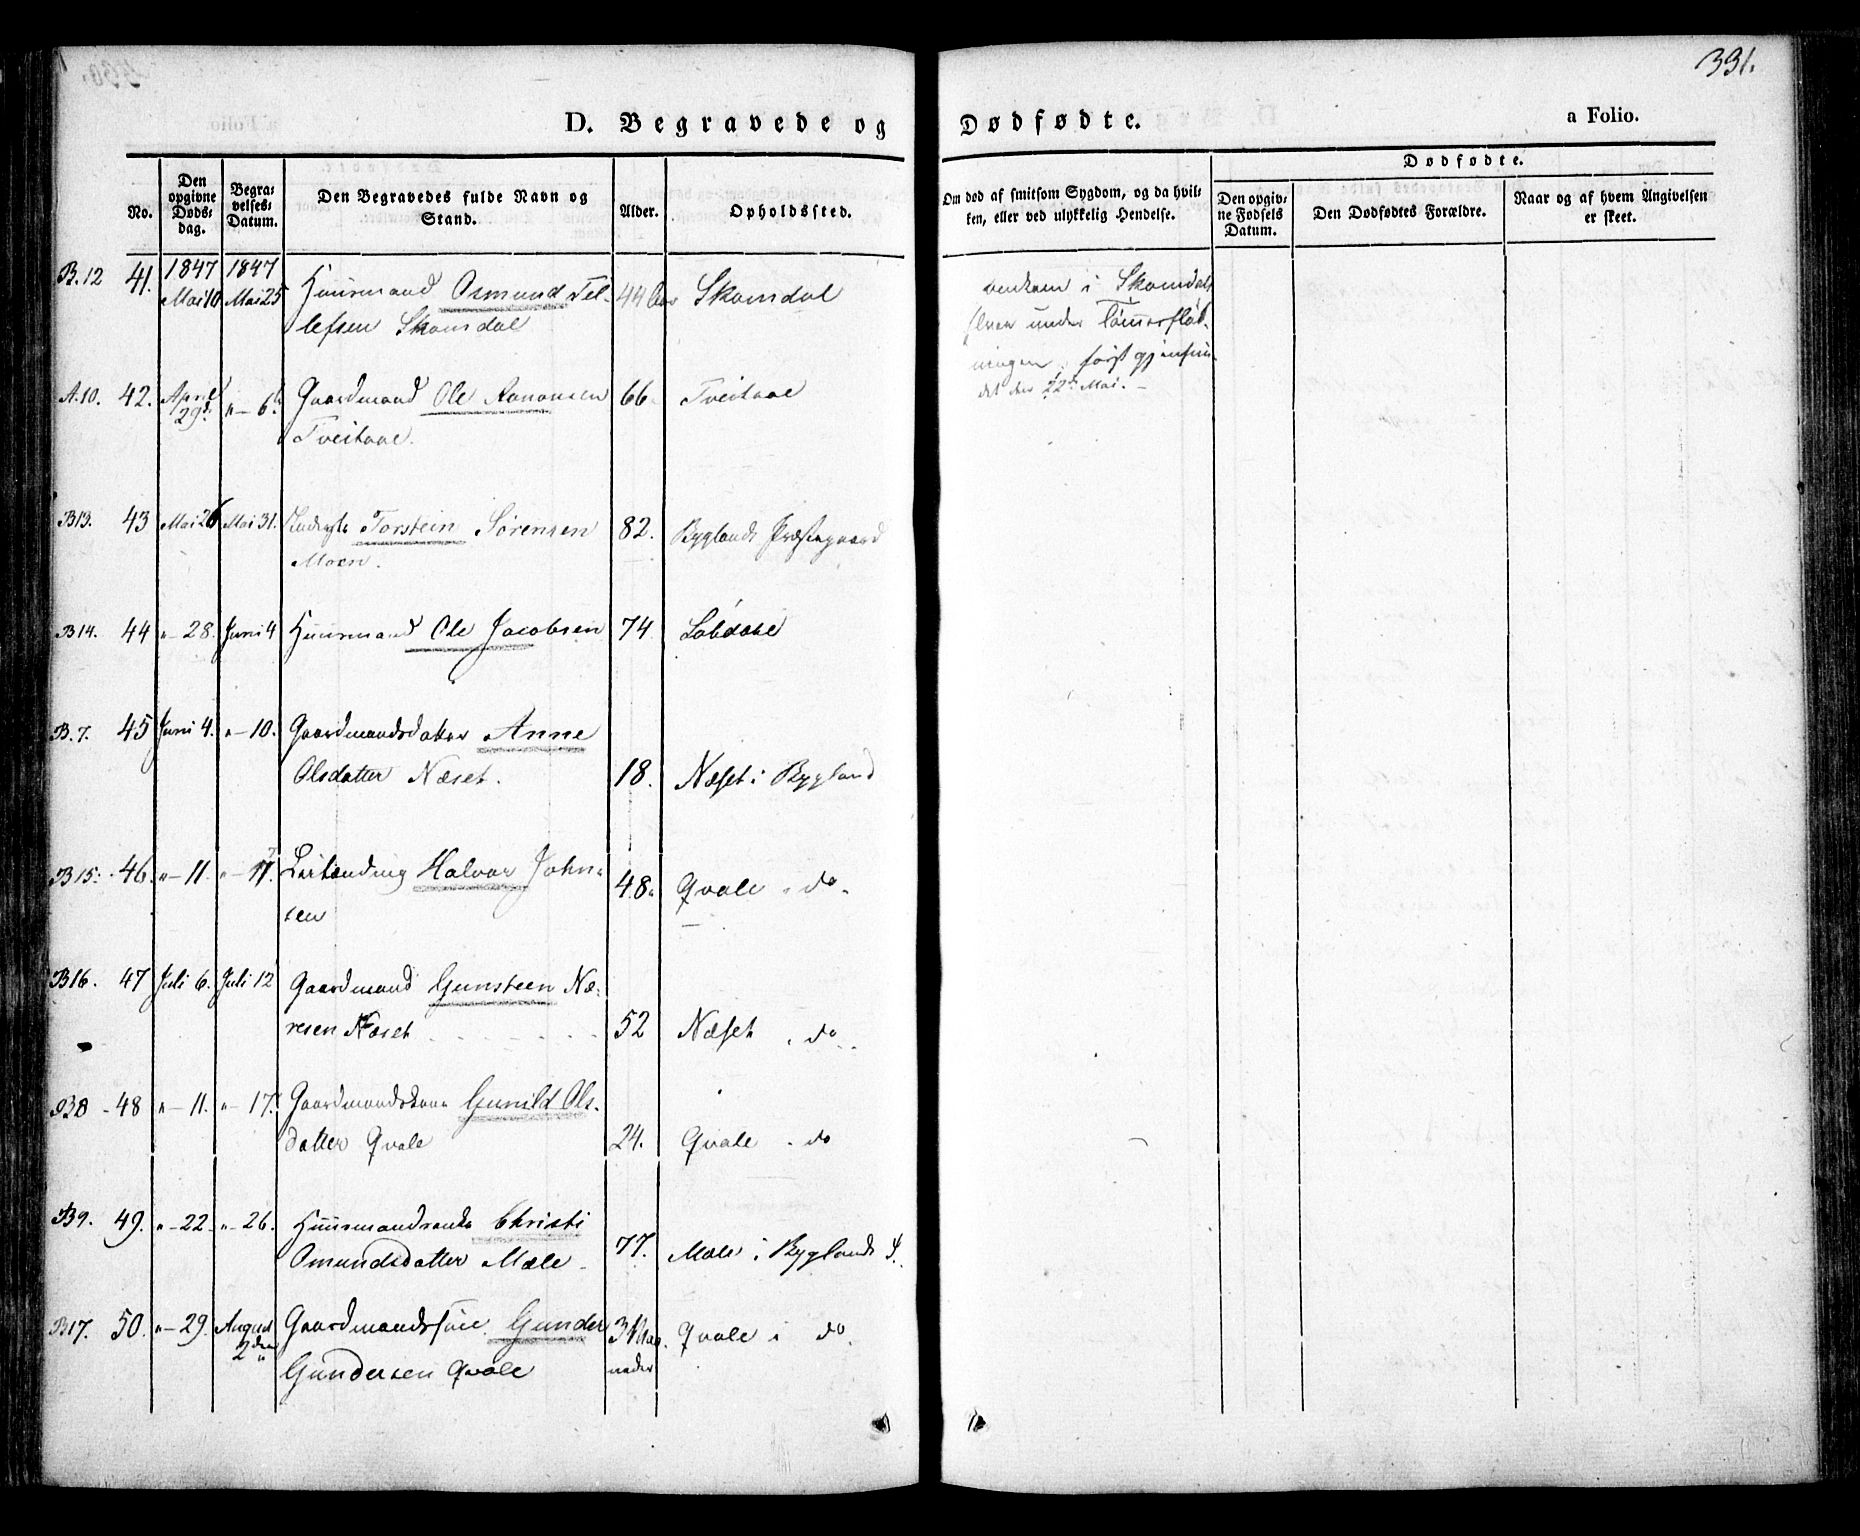 331.
D. Begravede og Dødfødte.
a Folio.
No.
Den opgivne Døds-dag.
Begra-velses-Datum.
Den Begravedes fulde Navn og Stand.
Alder.
Opholdssted.
Om død af smitsom Sygdom, og da hvil-ken, eller ved ulykkelig Hendelse.
Dødfødte.
Den opgiv-ne Fødsels Datum.
Den Dødfødtes Forældre.
Naar og af hvem Angivelsen er skeet.
B.12 41. 1847 Mai 10 1847 Mai 25 Huusmand Osmund Tel-
lefsen Skomdal 44 Aar Skomdal
i Skomdals
Elven under Tømmerfløt-
ningen, først gjenfun-
det den 22de Mai. -
A.10. 42. April 29d. " - 6 Gaardmand Ole Aanonsen 66. Tveitaae
Tveitaae.
B13. 43 Mai 26 Mai 31. Torstein Sørensen 82. Byglands Præstegaard
Moen.
B14. 44 " - 28. Juni 4 Huusmand Ole Jacobsen 74 Lobdale
B.7. 45 Juni 4. " - 10. Gaardmandsdatter Anne
Olsdatter Næset. 18. Næset i Bygland
B15. 46. " - 11. " - 17. Halvor John-
sen 48. Qvale " do.
B16. 47 Juli 6. Juli 12 Gaardmand Gunsteen Næ-
resen Næset 52 Næset " do
B8 48 " - 11. " - 17. Gaardmandskone Gunild Ols-
datter Qvale 24. Qvale " do
B9. 49. " - 22. " - 26. Huusmandsenke Christi
Omundsdatter Mæle 77. Mæle i Byglands S.
B17. 50. " - 29. August 2den Gaardmandssøn Gunder 3 Maa-
Gundersen Qvale neder Qvale i do.